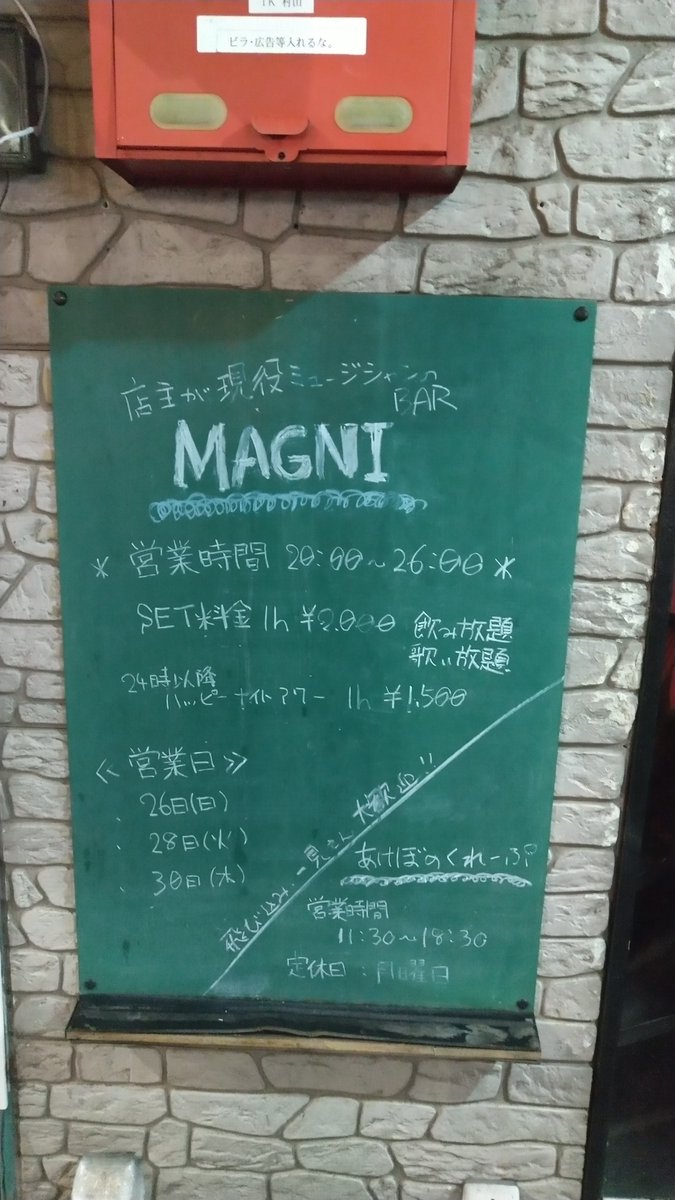 TK 村山
ビラ・広告等入れるな。
店主が現役ミュージシャンの
BAR
MAGNI
* 営業時間 20:00~26:00 *
SET料金 1h ¥2.000 飲み放題
歌い放題
24時以降
ハッピーナイトアワー 1h ¥1.500
≪ 営業日 ≫
、26日(日)
、28日(火)
、30日(木)
飛び込み、一見さん 大歓迎!!
あけぼのくれーぷ
営業時間
11:30~18:30
定休日:月曜日